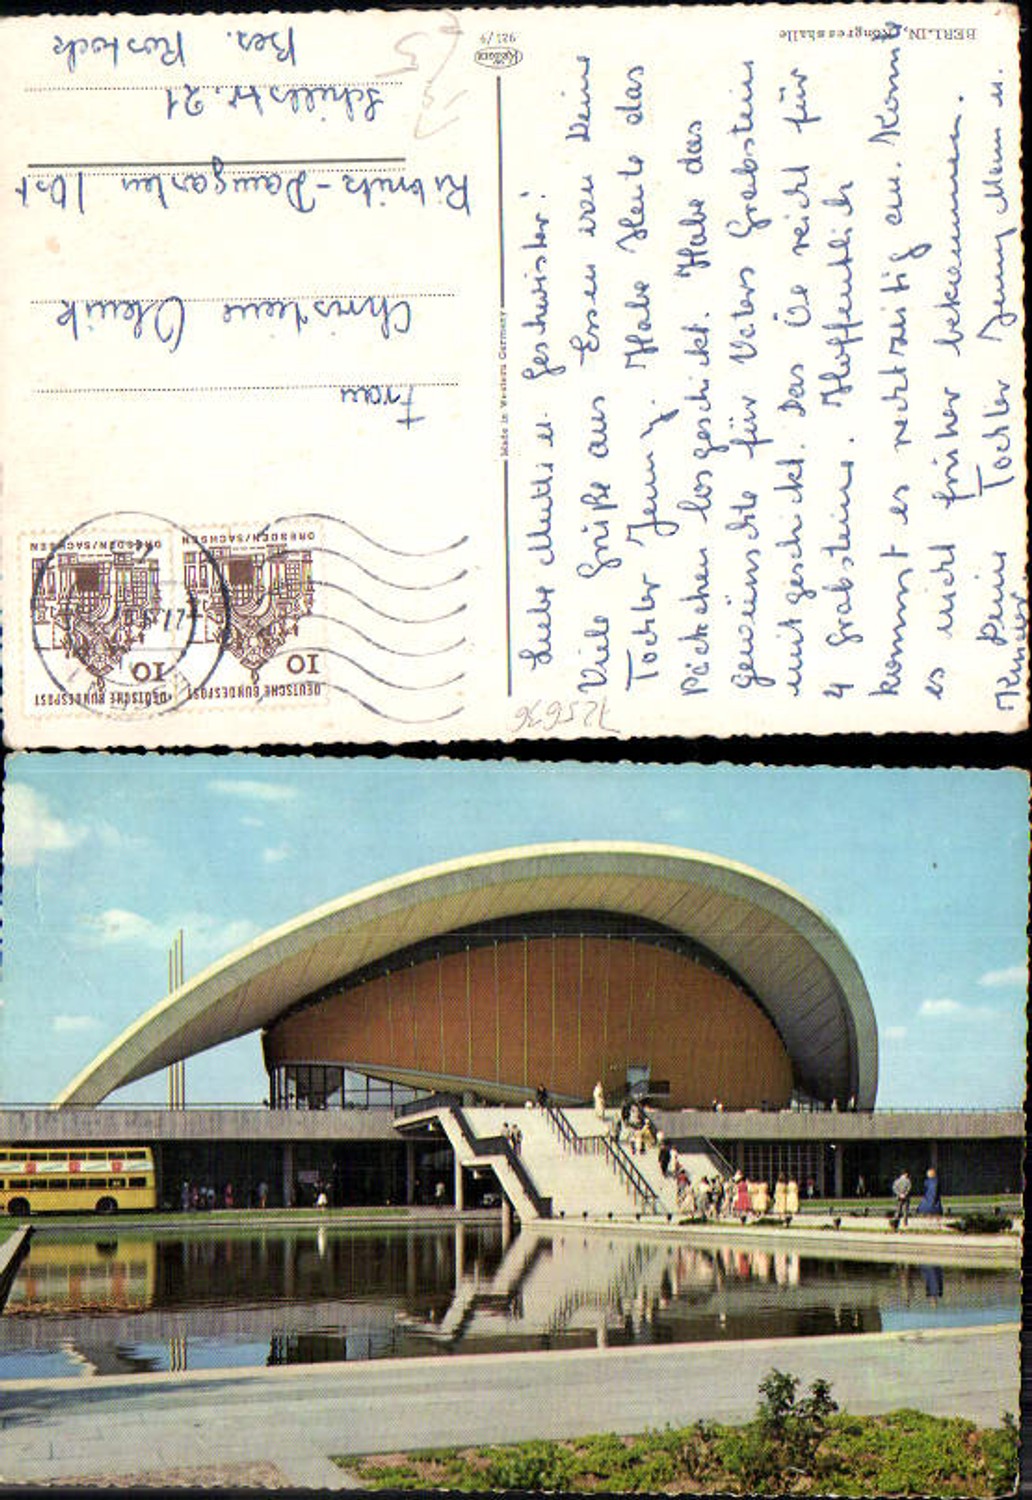 BERLIN, Kongresshalle
981/9
Made in Western Germany
DEUTSCHE BUNDESPOST
10
DRESDEN/SACHSEN
DEUTSCHE BUNDESPOST
10
DRESDEN/SACHSEN
Frau
Christine
Ribnitz-Damgarten /Ost
Schillstr. 21
Bez. Rostock
Liebe Mutti u. Geschwister!
Viele Grüße aus Essen von Deine
Tochter Jenny. Habe Heute das
Päckchen losgeschikt. Habe das
gewünschte für Vaters Grabstein
mit geschikt. Das Öl reicht für
4 Grabsteine. Hoffentlich
kommst es rechtzeitig an. Konnte
es nicht früher bekommen.
Deine Tochter Jenny Mann u.
Kinder
725636